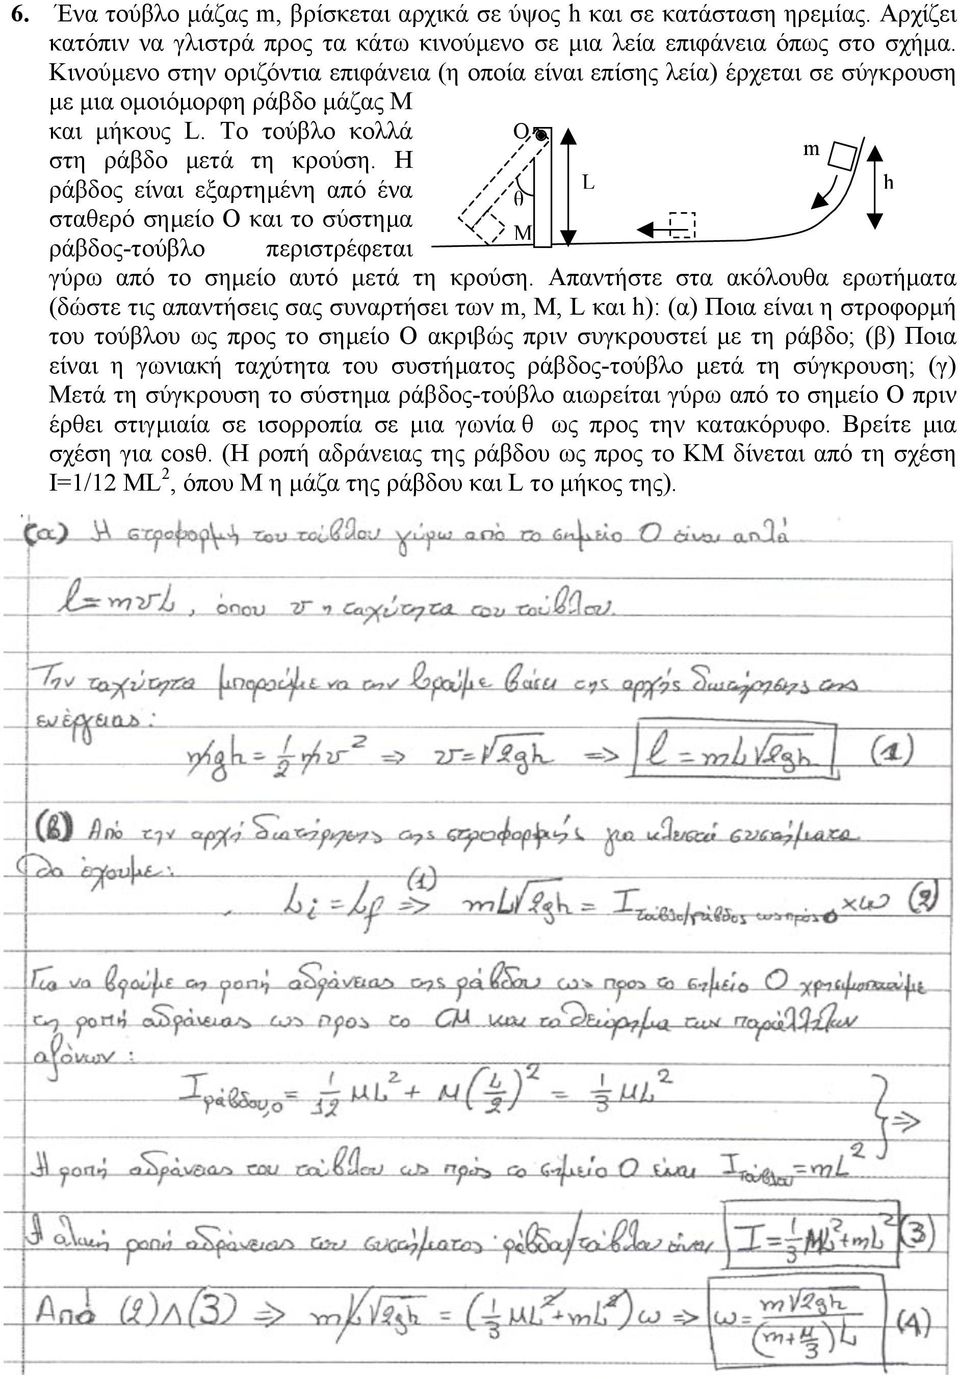 6. Ένα τούβλο μάζας m, βρίσκεται αρχικά σε ύψος h και σε κατάσταση ηρεμίας. Αρχίζει
κατόπιν να γλιστρά προς τα κάτω κινούμενο σε μια λεία επιφάνεια όπως στο σχήμα.
Κινούμενο στην οριζόντια επιφάνεια (η οποία είναι επίσης λεία) έρχεται σε σύγκρουση
με μια ομοιόμορφη ράβδο μάζας Μ
και μήκους L. Το τούβλο κολλά
στη ράβδο μετά τη κρούση. Η
ράβδος είναι εξαρτημένη από ένα
σταθερό σημείο Ο και το σύστημα
ράβδος-τούβλο περιστρέφεται
O
m
L
h
θ
M
γύρω από το σημείο αυτό μετά τη κρούση. Απαντήστε στα ακόλουθα ερωτήματα
(δώστε τις απαντήσεις σας συναρτήσει των m, M, L και h): (α) Ποια είναι η στροφορμή
του τούβλου ως προς το σημείο Ο ακριβώς πριν συγκρουστεί με τη ράβδο; (β) Ποια
είναι η γωνιακή ταχύτητα του συστήματος ράβδος-τούβλο μετά τη σύγκρουση; (γ)
Μετά τη σύγκρουση το σύστημα ράβδος-τούβλο αιωρείται γύρω από το σημείο Ο πριν
έρθει στιγμιαία σε ισορροπία σε μια γωνία θ ως προς την κατακόρυφο. Βρείτε μια
σχέση για cosθ. (Η ροπή αδράνειας της ράβδου ως προς το ΚΜ δίνεται από τη σχέση
I=1/12 ML², όπου Μ η μάζα της ράβδου και L το μήκος της).
(α) Η στροφορμή του τούβλου γύρω από το σημείο Ο είναι απλά
l = mυL, όπου υ η ταχύτητα του τούβλου.
Την ταχύτητα μπορούμε να την βρούμε βάσει της αρχής διατήρησης της
ενέργειας:
mgh = 1/2 mυ² => υ = √2gh => l = mL√2gh (1)
(β) Από την αρχή διατήρησης της στροφορμής για κλειστά συστήματα
θα έχουμε:
Li = Lf (1) => mL√2gh = I τούβλο/ράβδος ως προς Ο × ω (2)
Για να βρούμε τη ροπή αδράνειας της ράβδου ως προς το σημείο Ο χρησιμοποιούμε
τη ροπή αδράνειας ως προς το CM και το θεώρημα των παραλλήλων
αξόνων:
I ράβδου,ο = 1/12 ML² + M(L/2)² = 1/3 ML²
} =>
Η ροπή αδράνειας του τούβλου ως πρός το σημείο Ο είναι I τούβλου = mL²
Η ολική ροπή αδράνειας του συστήματος ράβδου/τούβλου είναι I = 1/3 ML² + mL² (3)
Από (2)Λ(3) => mL√2gh = (1/3 ML² + mL²) ω => ω = m√2gh / (m + M/3) L (4)